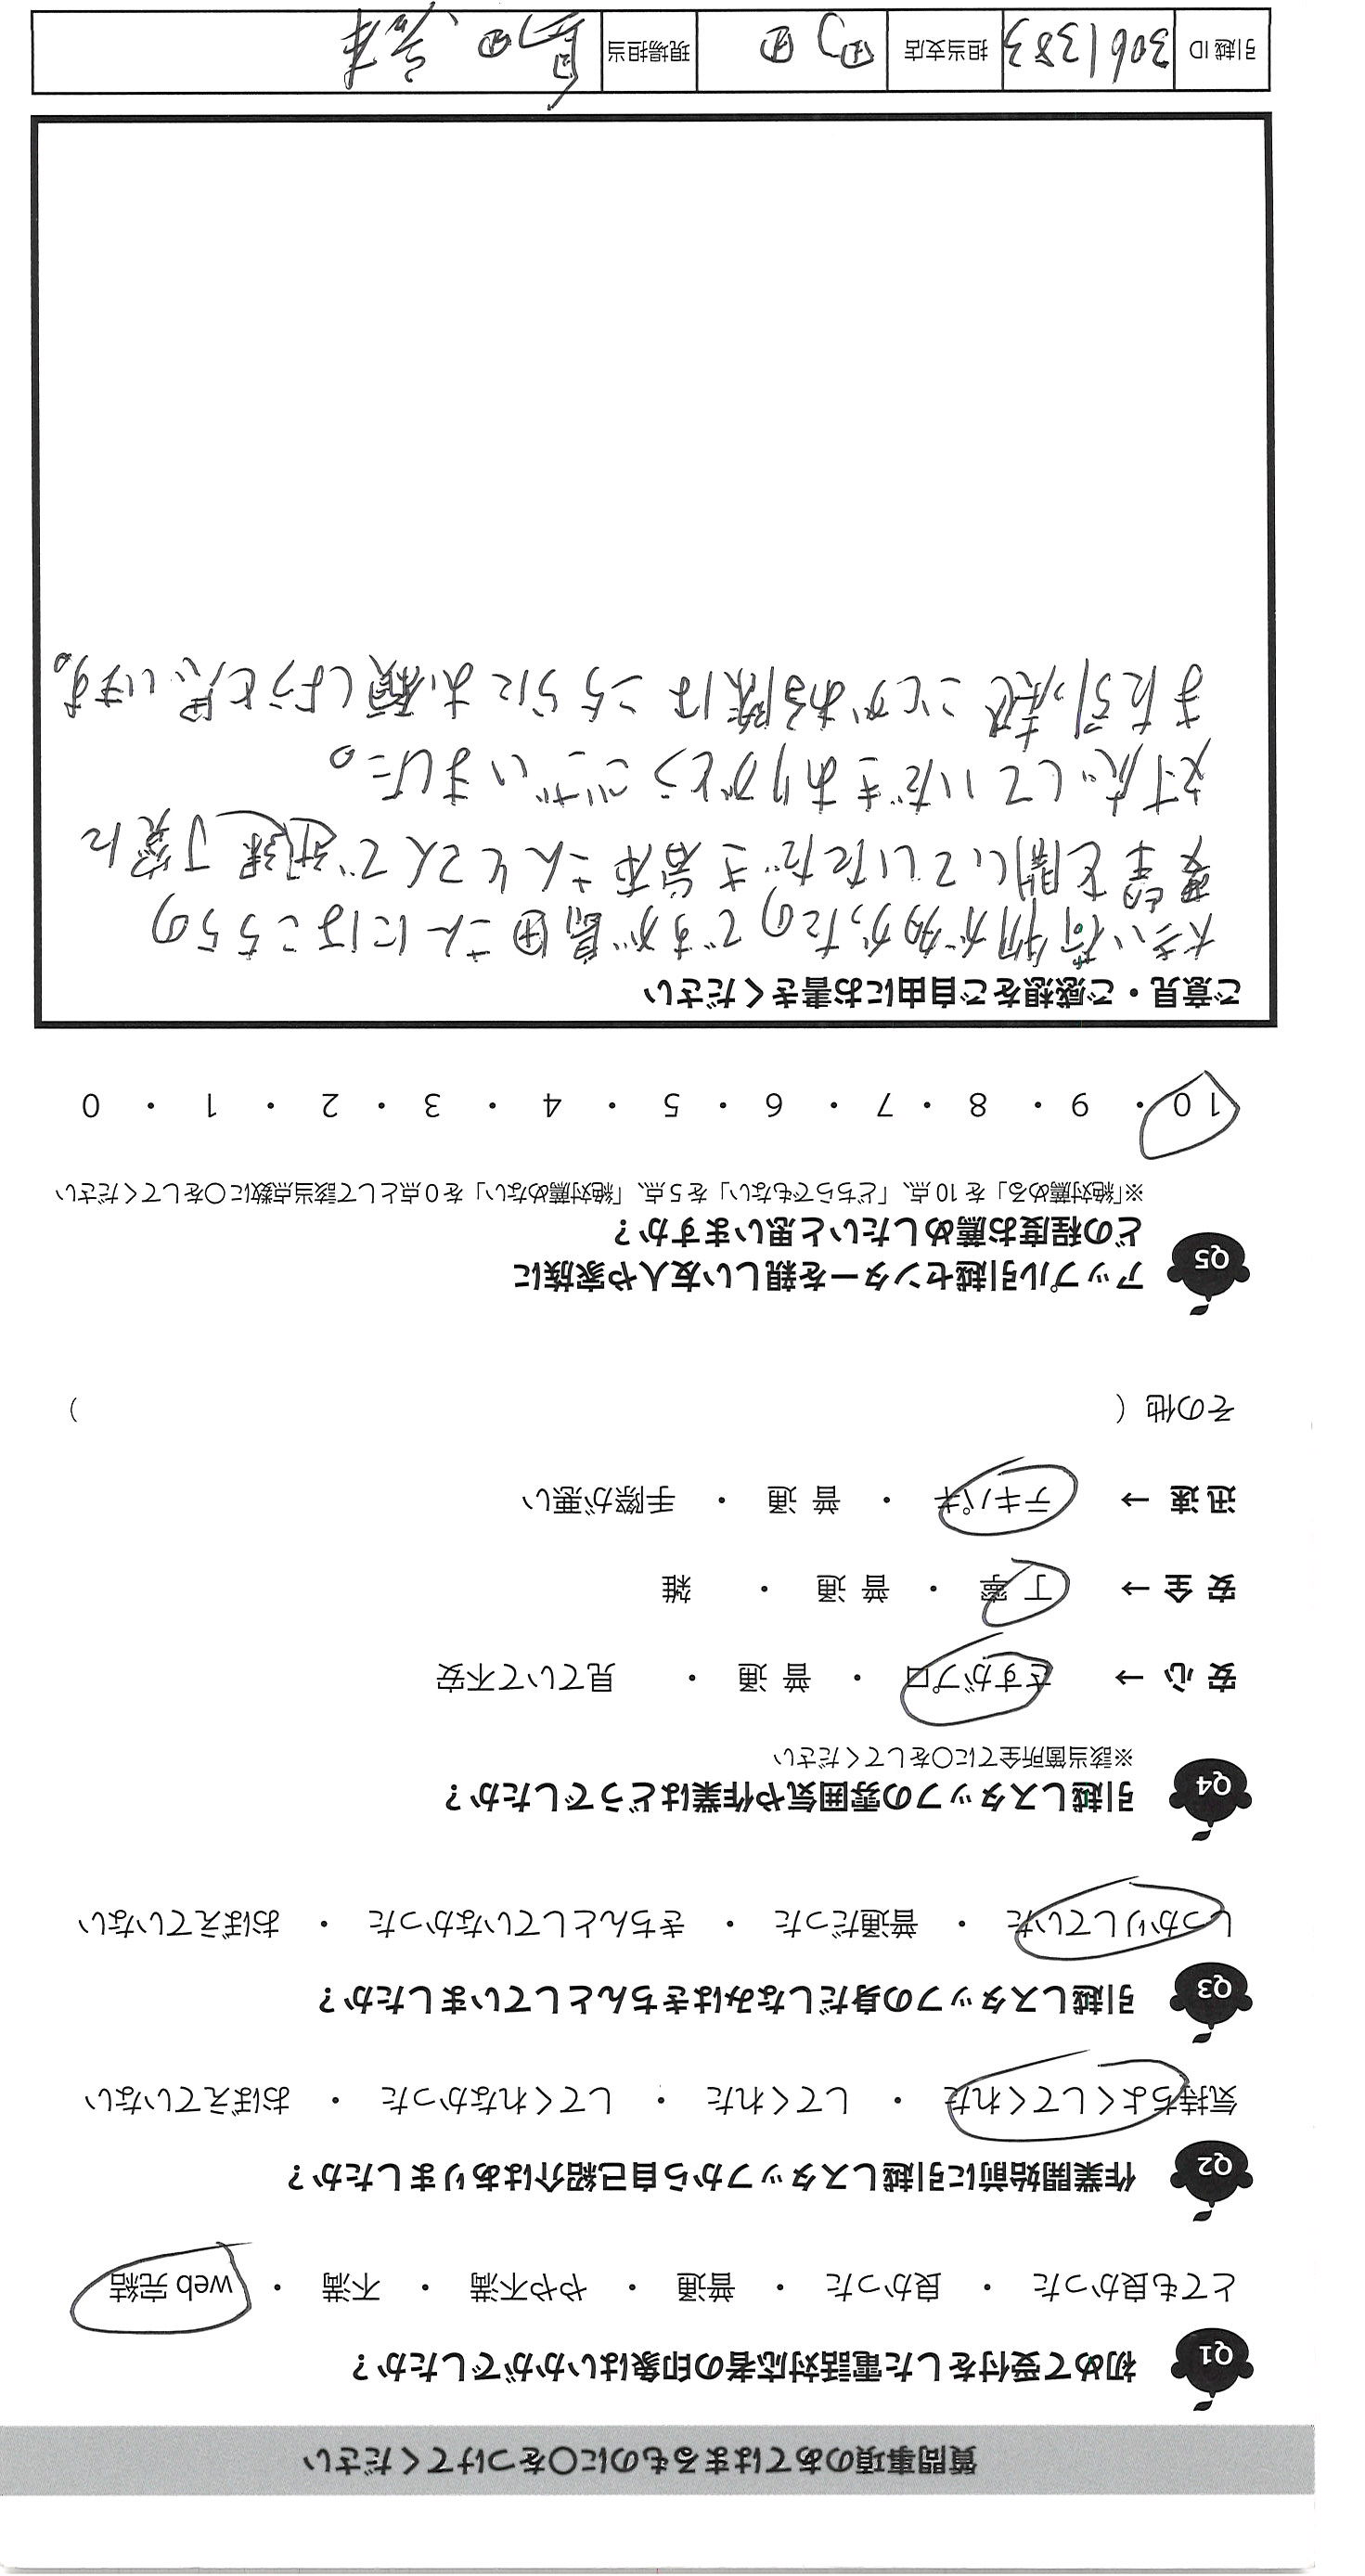 質問事項のあてはまるものに〇をつけてください
Q1 初めて受付をした電話対応者の印象はいかがでしたか？
とても良かった ・ 良かった ・ 普通 ・ やや不満 ・ 不満 ・ web 完結
Q2 作業開始前に引越しスタッフから自己紹介はありましたか？
気持ちよくしてくれた ・ してくれた ・ してくれなかった ・ おぼえていない
Q3 引越しスタッフの身だしなみはきちんとしていましたか？
しっかりしていた ・ 普通だった ・ きちんとしていなかった ・ おぼえていない
Q4 引越しスタッフの雰囲気や作業はどうでしたか？
※該当箇所全てに〇をしてください
安 心 → さすがプロ ・ 普 通 ・ 見ていて不安
安 全 → 丁 寧 ・ 普 通 ・ 雑
迅 速 → テキパキ ・ 普 通 ・ 手際が悪い
その他（ ）
Q5 アップル引越センターを親しい友人や家族に
どの程度お薦めしたいと思いますか？
※「絶対薦める」を 10 点、「どちらでもない」を 5 点、「絶対薦めない」を 0 点として該当点数に〇をしてください
10 ・ 9 ・ 8 ・ 7 ・ 6 ・ 5 ・ 4 ・ 3 ・ 2 ・ 1 ・ 0
ご意見・ご感想をご自由にお書きください
大きい荷物が多かったのですが島田さんにはこちらの
要望を聞いていただき岩本さんもとんで迅速丁寧に
対応していだきありがとうございました。
また引っ越すことがある際はこちらにお願しようと思います。
引越 ID 3061383 担当支店 町田 現場担当 島田、岩本